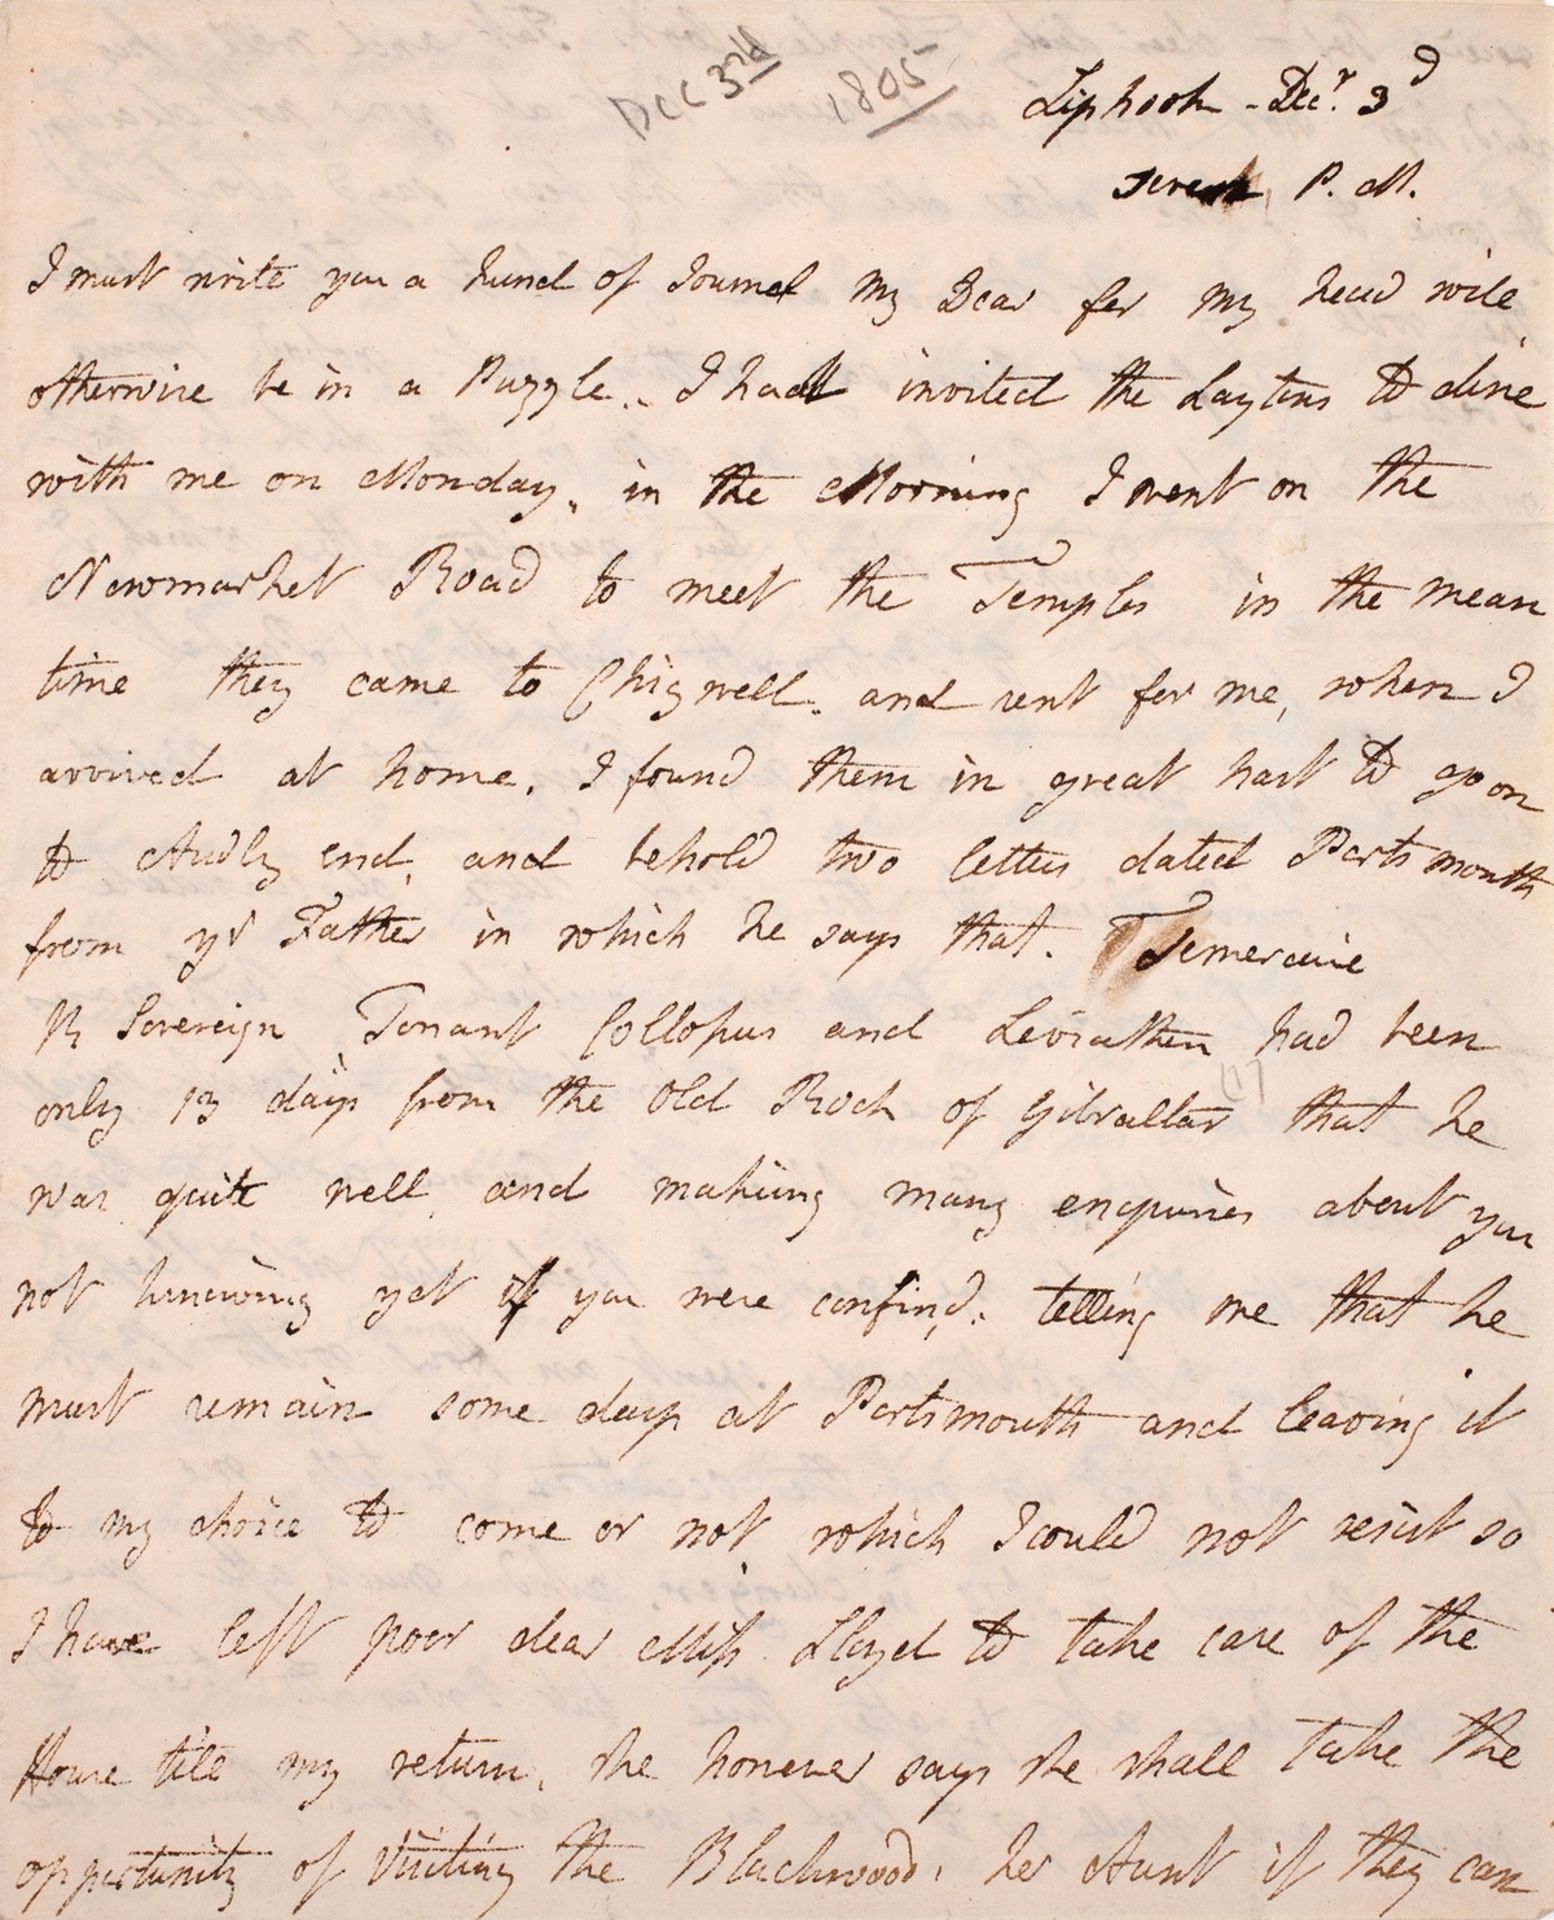 Dec 3rd 1805
Liphook - Decr. 3d
seven P. M.
I must write you a kind of Journal my Dear for my head will
otherwise be in a Puzzle. I had invited the Laytons to dine
with me on Monday, in the Morning I went on the
Newmarket Road to meet the Temples in the mean
time they came to Chigwell. and sent for me, when I
arrived at home. I found them in great hast to go on
to Audly end, and behold two letters dated Portsmouth
from yr Father in which he says that. Temeraire
R Sovereign Tonant Collopus and Leviathen had been
only 13 days from the Old Rock of Gibraltar that he
was quite well, and making many enquiries about you
not knowing yet if you were confin,d. telling me that he
must remain some days at Portsmouth and leaving it
to my choice to come or not, which I could not resist so
I have left poor dear Miss Lloyd to take care of the
House till my return, she however says she shall take the
opportunity of visiting the Blackwood, her Aunt if they can